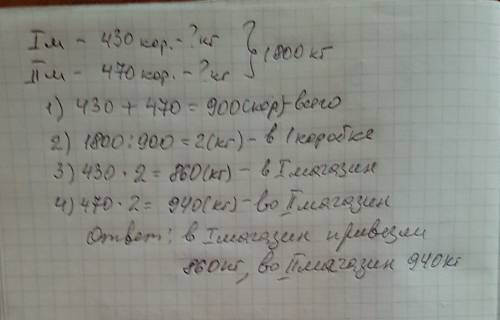 I м – 430 кор. – ? кг } 1800 кг
II м – 470 кор. – ? кг
1) 430 + 470 = 900 (кор) – всего
2) 1800 : 900 = 2 (кг) – в 1 коробке
3) 430 · 2 = 860 (кг) – в I магазин
4) 470 · 2 = 940 (кг) – во II магазин
Ответ: в I магазин привезли
860 кг, во II магазин 940 кг